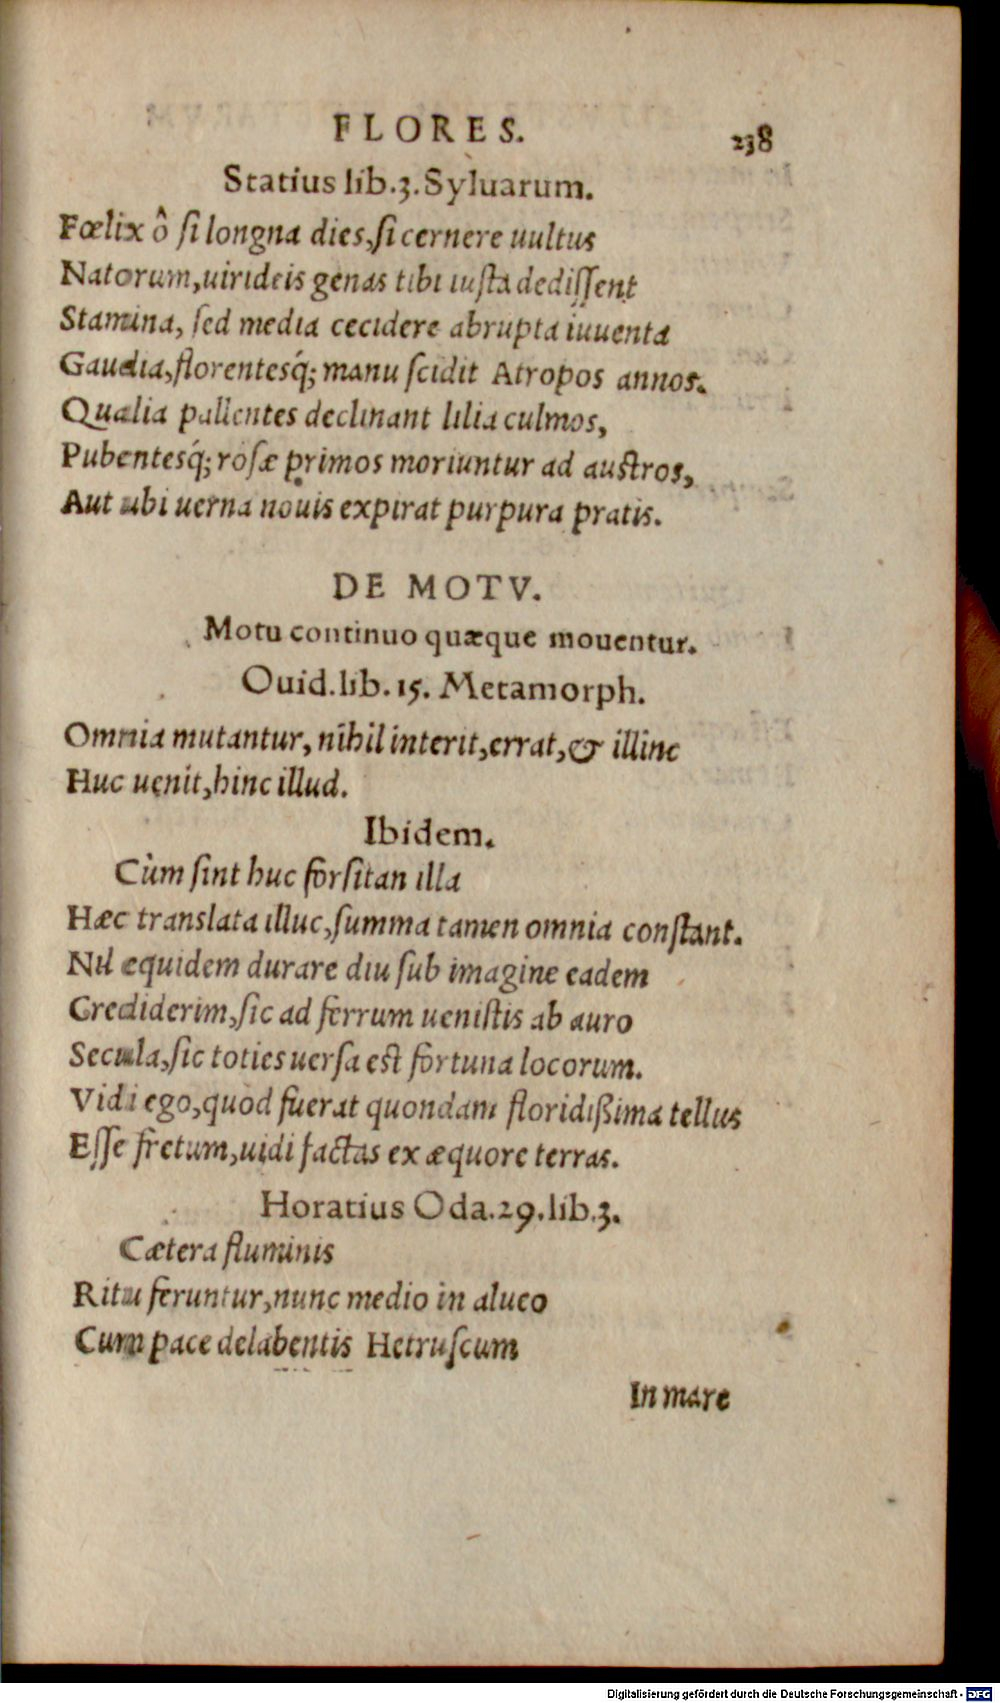 FLORES.
238
Statius lib.3.Syluarum.
Fœlix ô si longna dies,si cernere uultus
Natorum,uirideis genas tibi iusta dedissent
Stamina, sed media cecidere abrupta iuuenta
Gaudia,florentesq́; manu scidit Atropos annos.
Qualia pallentes declinant lilia culmos,
Pubentesq́; rosæ primos moriuntur ad austros,
Aut ubi uerna nouis expirat purpura pratis.
DE MOTV.
Motu continuo quæque mouentur.
Ouid.lib.15. Metamorph.
Omnia mutantur, nihil interit,errat,& illinc
Huc uenit,hinc illud.
Ibidem.
Cùm sint huc forsitan illa
Hæc translata illuc,summa tamen omnia constant.
Nil equidem durare diu sub imagine eadem
Crediderim,sic ad ferrum uenistis ab auro
Secula,sic toties uersa est fortuna locorum.
Vidi ego,quod fuerat quondam floridißima tellus
Esse fretum,uidi factas ex æquore terras.
Horatius Oda.29.lib.3.
Cætera fluminis
Ritu feruntur,nunc medio in alueo
Cum pace delabentis Hetruscum
In mare
Digitalisierung gefördert durch die Deutsche Forschungsgemeinschaft - DFG